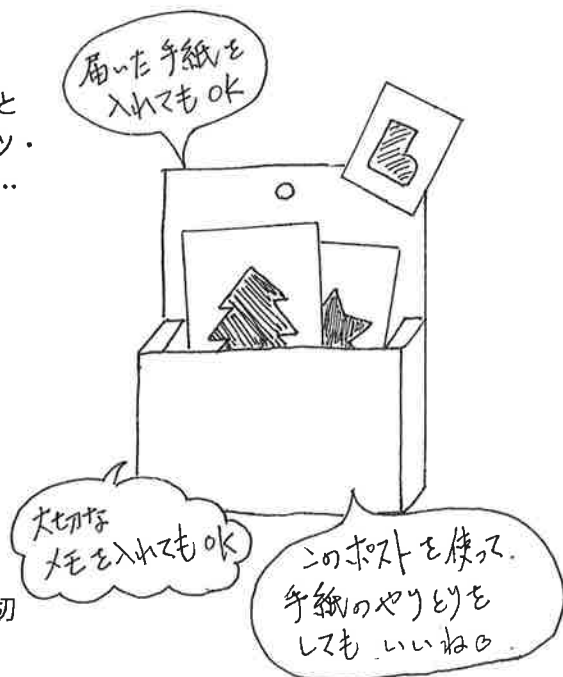 届いた手紙を
入れてもOK
と
ツ・
‥
大切な
メモを入れてもOK
切
このポストを使って、
手紙のやりとりを
してもいいね